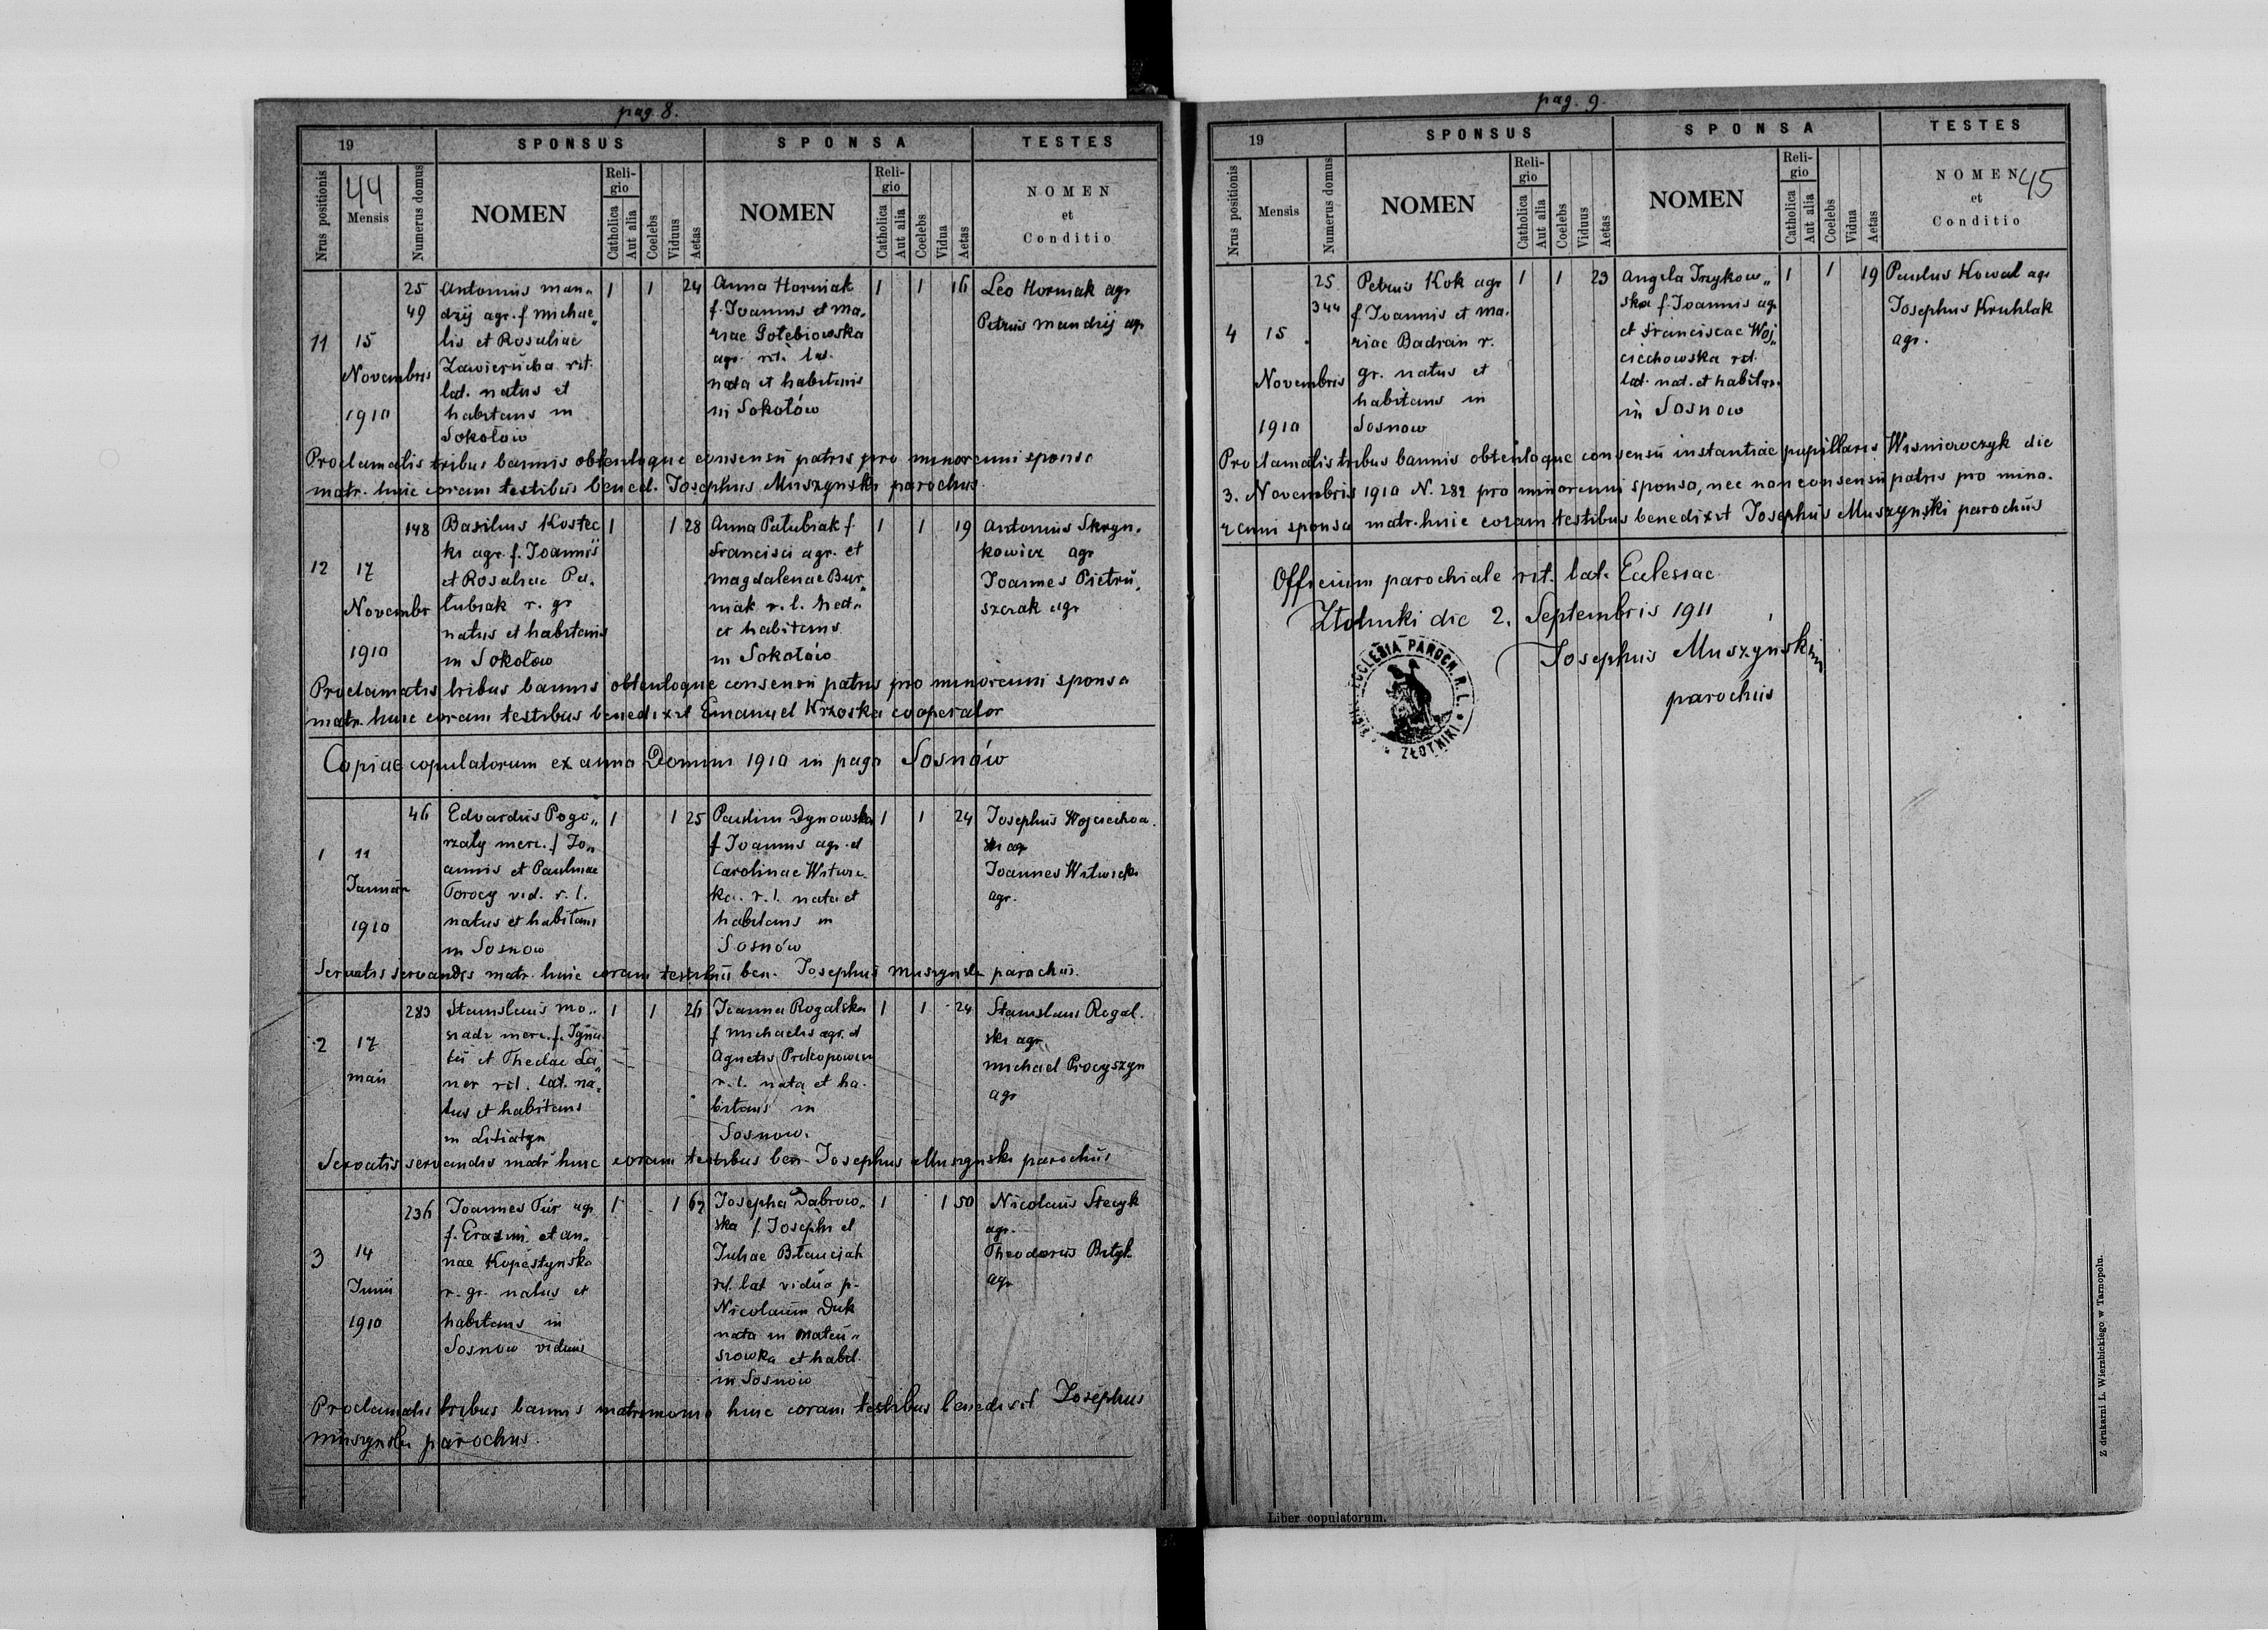 pag. 8.
19
SPONSUS
SPONSA
TESTES
Nrus positionis
44
Mensis
Numerus domus
NOMEN
Religio
Catholica
Aut alia
Coelebs
Viduus
Aetas
NOMEN
Religio
Catholica
Aut alia
Coelebs
Vidua
Aetas
NOMEN
et
Conditio
11
15
Novembris
1910
25
49
Antonius Man„
drij agr. f. Michae„
lis et Rosaliae
Zawierucha rit.
lat. natus et
habitans in
Sokołów
1 1 24
Anna Horniak
f. Joannis et Ma„
riae Gołębiowska
agr. rit. lat.
nata et habitans
in Sokołów
1 1 16
Leo Horniak agr
Petrus Mandrij agr
Proclamatis tribus bannis obtentoque consensu patris pro minorenni sponsa
matr. huic coram testibus bened. Josephus Muszynski parochus
12
17
Novembr
1910
148
Basilius Kostec
ki agr. f. Joannis
et Rosaliae Pa„
tubiak r. gr
natus et habitans
in Sokołow
1 1 28
Anna Patubiak f.
Francisci agr. et
Magdalenae Bur
niak r. l.
et habitans
in Sokołów
1 1 19
Antonius Skryn„
kowicz agr
Joannes Pietru„
szczak agr
Proclamatis tribus bannis obtentoque consensu patris pro minorenni sponsa
matr. huic coram testibus benedixit Emanuel Wrzoska cooperator
Copiae copulatorum ex anno Domini 1910 in pago Sosnów
1
11
Januar
1910
46
Edvardus Pogo„
rzaly merc. f. Jo„
annis et Paulinae
Torocy vid. r. l.
natus et habitans
in Sosnow
1 1 25
Paulina Dynowska
f Joannis agr. et
Carolinae Witwic„
ka. r. l. nata et
habitans in
Sosnów
1 1 24
Josephus Wojciechow
ski agr
Joannes Witwicki
agr.
Servatis servandis matr. huic coram testibus ben. Josephus Muszynski parochus.
2
17
Maii
283
Stanislaus Mo„
siadz merc. f. Igna
tii et Theclae La„
ner rit. lat. na„
tus et habitans
in Litiatyn
1 1 26
Joanna Rogalska
f Michaelis agr. et
Agnetis Prokopowicz
r. l. nata et ha„
bitans in
Sosnow.
1 1 24
Stanislaus Rogal„
ski agr.
Michael Procyszyn
agr
Servatis servandis matr huic coram testibus ben. Josephus Muszynski parochus
3
14
Junii
1910
236
Joannes Tur agr
f. Erazmi et An„
nae Kopestynska
r. gr. natus et
habitans in
Sosnow viduus
1 1
Josepha Dabrow„
ska f. Josephi et
Juliae
rit. lat vidua p.
Nicolaum Duk
nata in Mateu„
szowka et habit.
in Sosnow
1 1 50
Nicolaus Stecyk
agr.
Theodorus
agr
Proclamatis tribus bannis matrimonio huic coram testibus benedixit Josephus
Muszynski parochus.
pag. 9.
19
SPONSUS
SPONSA
TESTES
Nrus positionis
Mensis
Numerus domus
NOMEN
Religio
Catholica
Aut alia
Coelebs
Viduus
Aetas
NOMEN
Religio
Catholica
Aut alia
Coelebs
Vidua
Aetas
NOMEN
45
et
Conditio
4
15
Novembris
1910
25
344
Petrus Kok agr
f. Joannis et Ma„
riae Badran r.
gr. natus et
habitans in
Sosnow
1 1 23
Angela Trzykow„
ska f. Joannis agr.
et Franciscae Woj„
ciechowska rit.
lat. nat. et habitans
in Sosnow
1 1 19
Paulus Kowal agr
Josephus Kruhlak
agr.
Proclamatis tribus bannis obtentoque consensu instantiae pupillaris Wisniowczyk die
3. Novembris 1910 N. 282 pro minorenni sponso, nec non consensu patris pro mino„
renni sponsa matr. huic coram testibus benedixit Josephus Muszynski parochus
Officium parochiale rit. lat. Ecclesiae
Złotniki die 2. Septembris 1911
Josephus Muszyński
parochus
ECCLESIA PAROCH. R. L.
ZŁOTNIKI
Liber copulatorum.
Z drukarni L. Wierzbickiego w Tarnopolu.